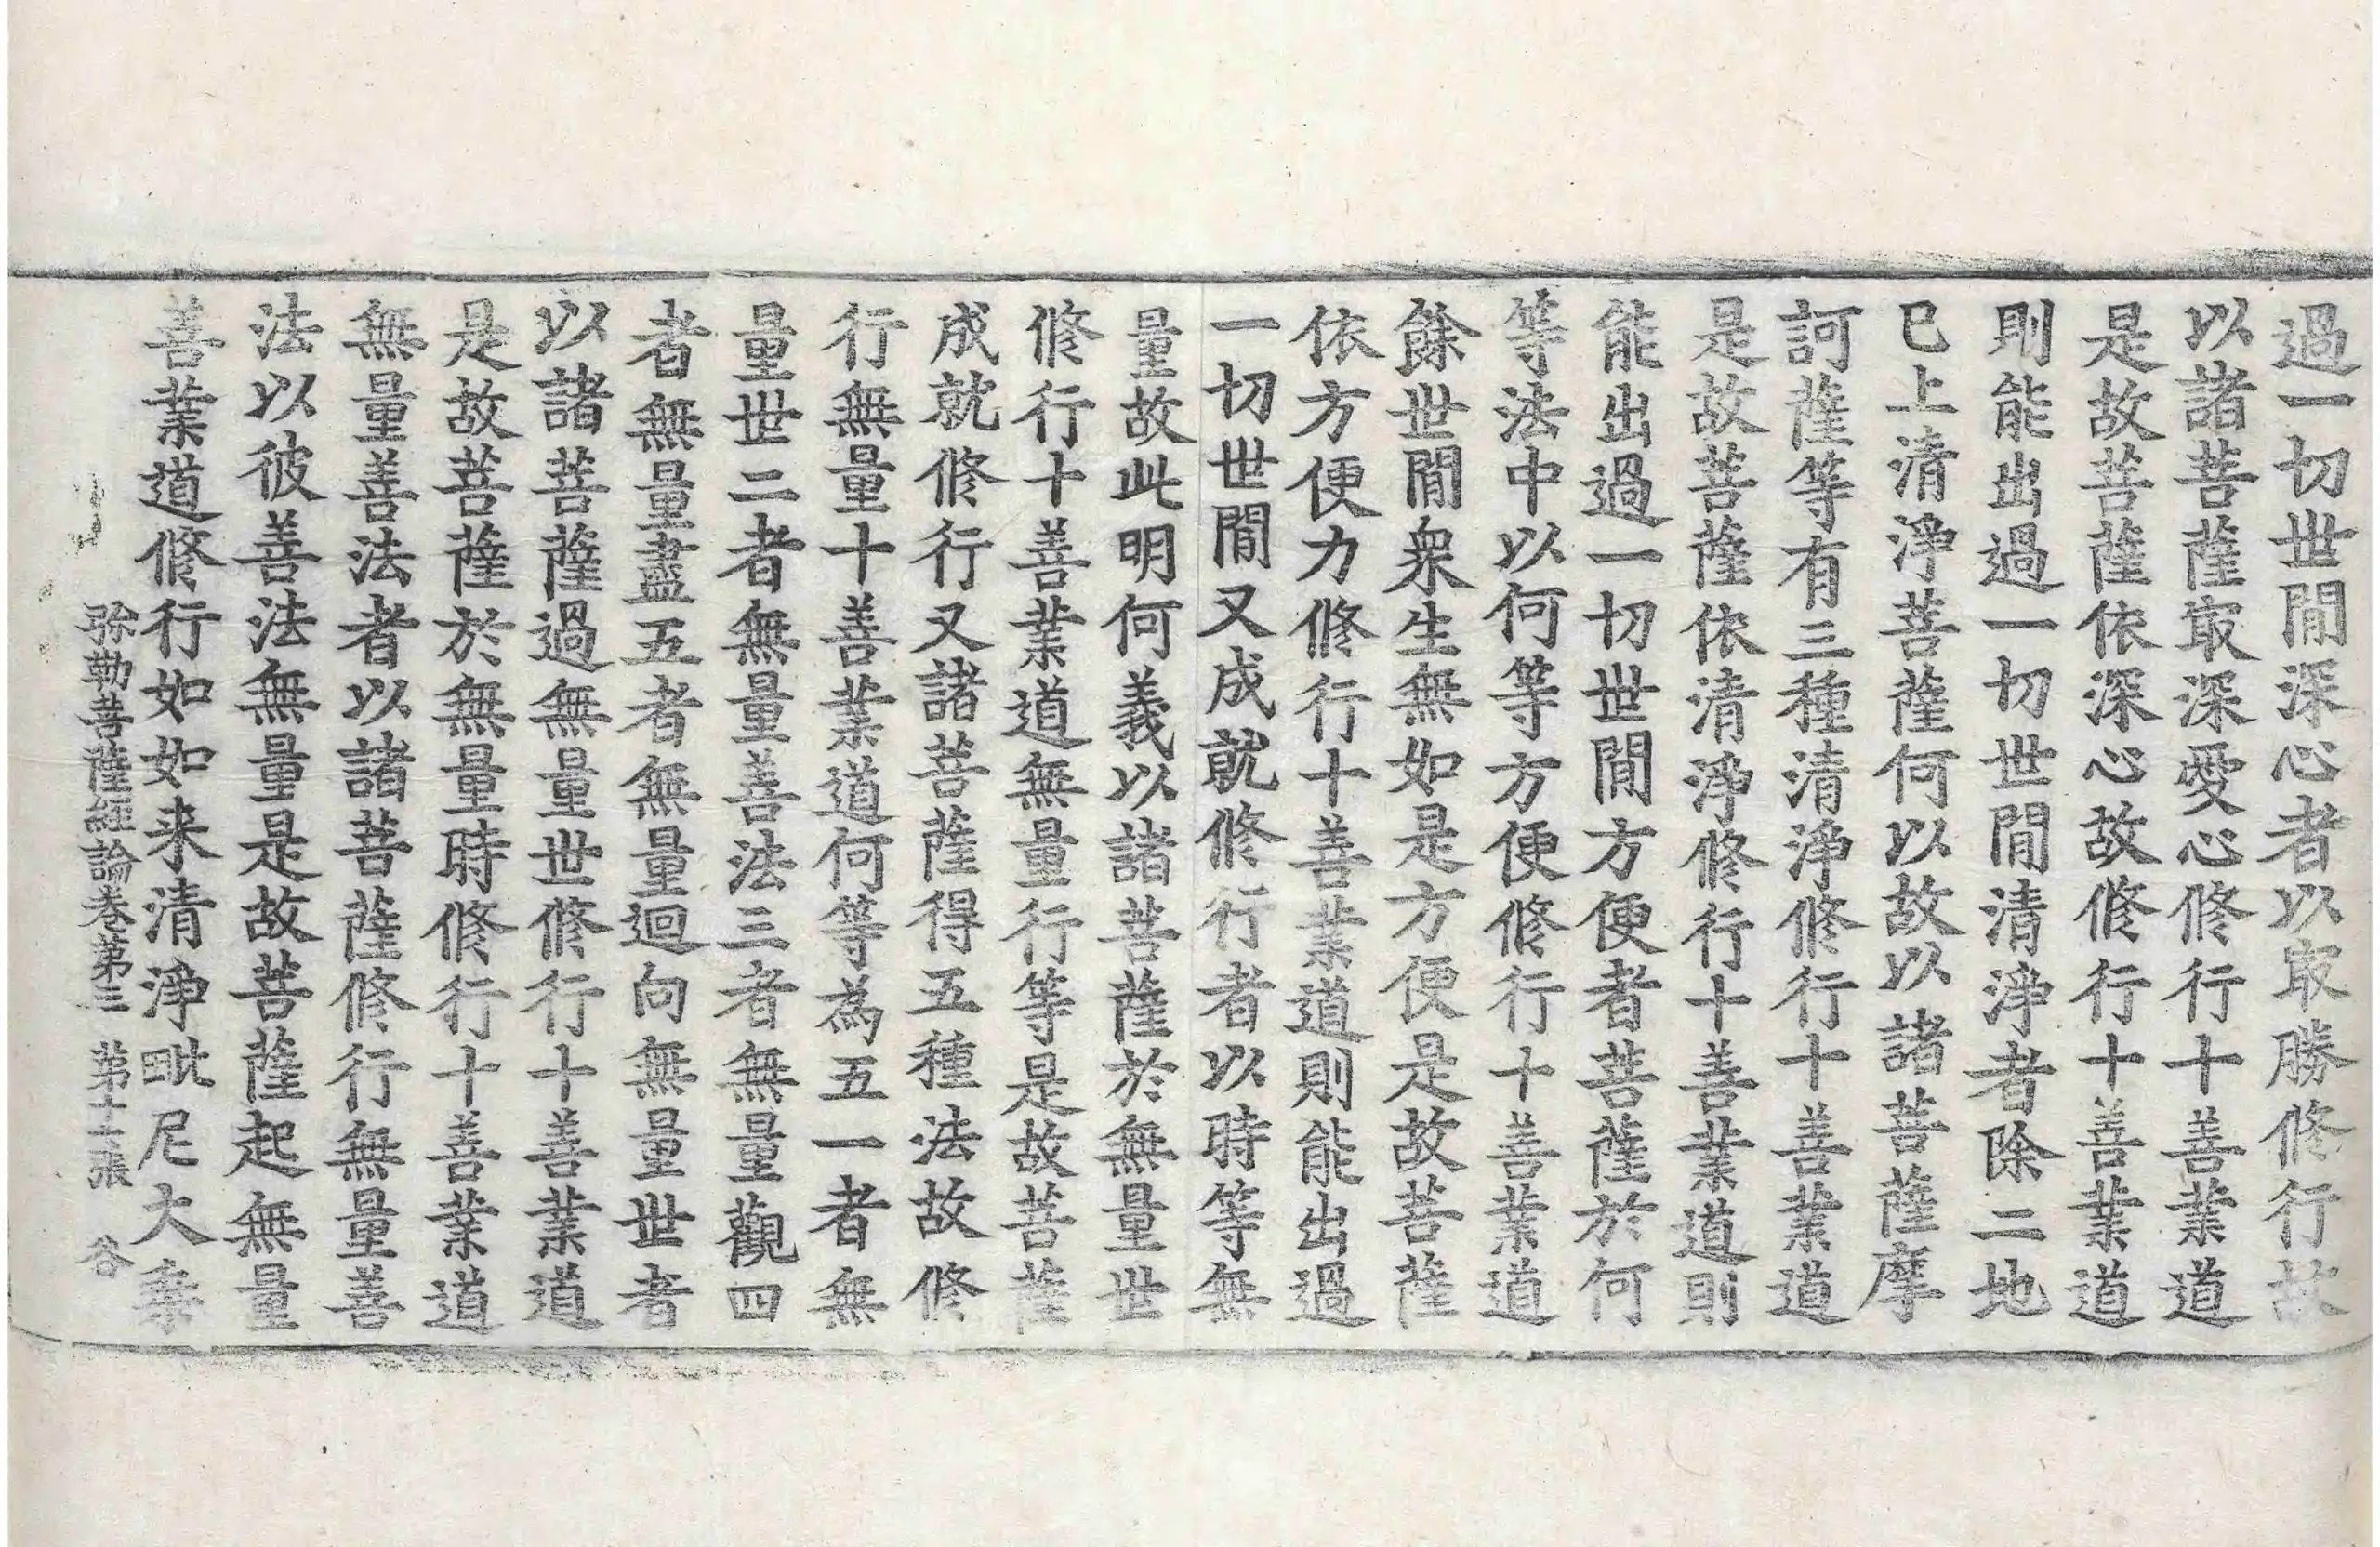 過一切世間深心者以取勝修行故
以諸菩薩取深愛心修行十善業道
是故菩薩依深心故修行十善業道
則能出過一切世間清淨者除二地
已上清淨菩薩何以故以諸菩薩摩
訶薩等有三種清淨修行十善業道
是故菩薩依清淨修行十善業道則
能出過一切世間方便者菩薩於何
等法中以何等方便修行十善業道
餘世間衆生無如是方便是故菩薩
依方便力修行十善業道則能出過
一切世間又成就修行者以時等無
量故此明何義以諸菩薩於無量世
修行十善業道無量行等是故菩薩
成就修行又諸菩薩得五種法故修
行無量十善業道何等為五一者無
量世二者無量善法三者無量觀四
者無量盡五者無量迴向無量世者
以諸菩薩過無量世修行十善業道
是故菩薩於無量時修行十善業道
無量善法者以諸菩薩修行無量善
法以彼善法無量是故菩薩起無量
善業道修行如如来清淨毗尼大乘
弥勒菩薩經論卷第三 第十二張 谷